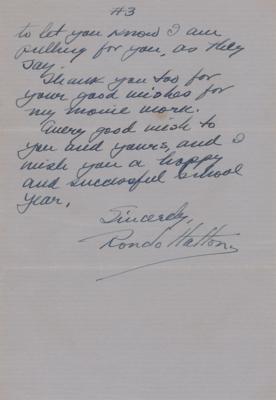 #3
to let you know I am
pulling for you, as they
say.
Thank you too for
your good wishes for
my movie work.
Every good wish to
you and yours, and I
wish you a happy
and successful school
year.
Sincerely,
Rondo Hatton